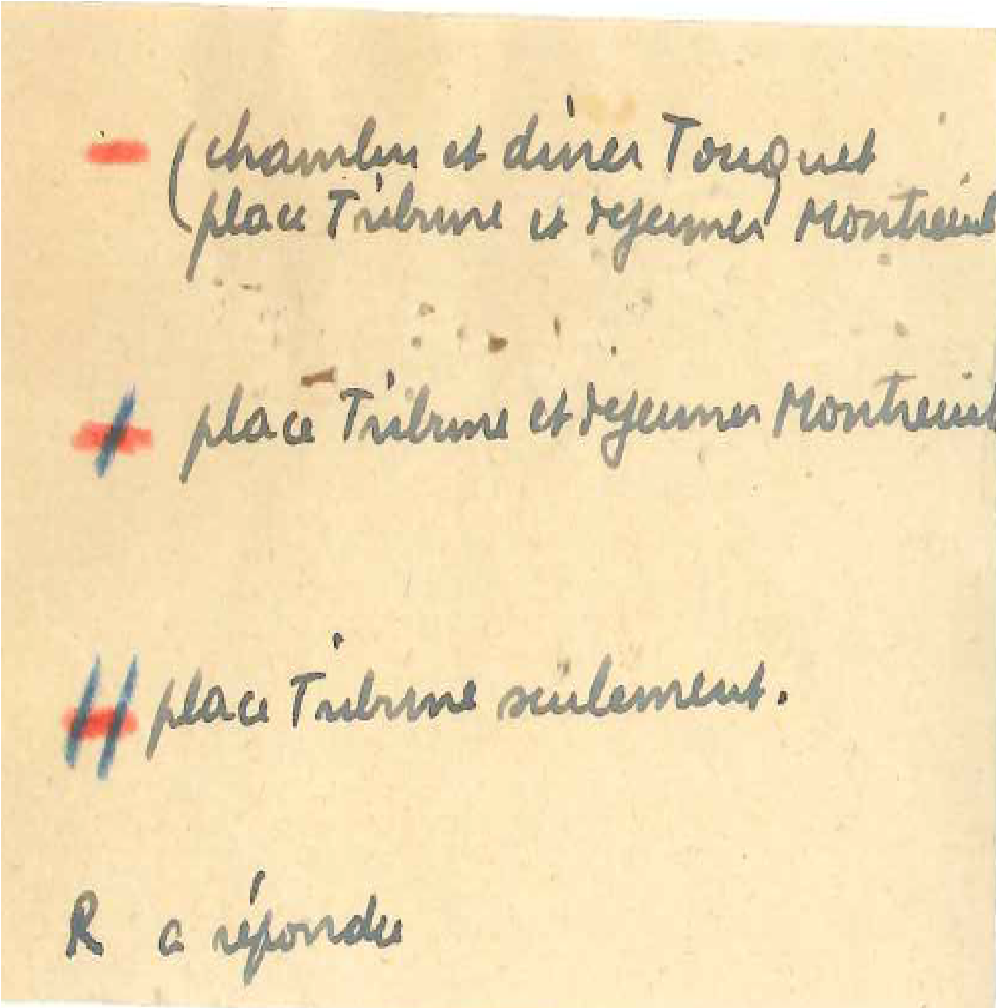 (chambre et diner Touquet
(place Tribune et dejeuner Montreuil
place Tribune et dejeuner Montreuil
place Tribune seulement.
R a répondu